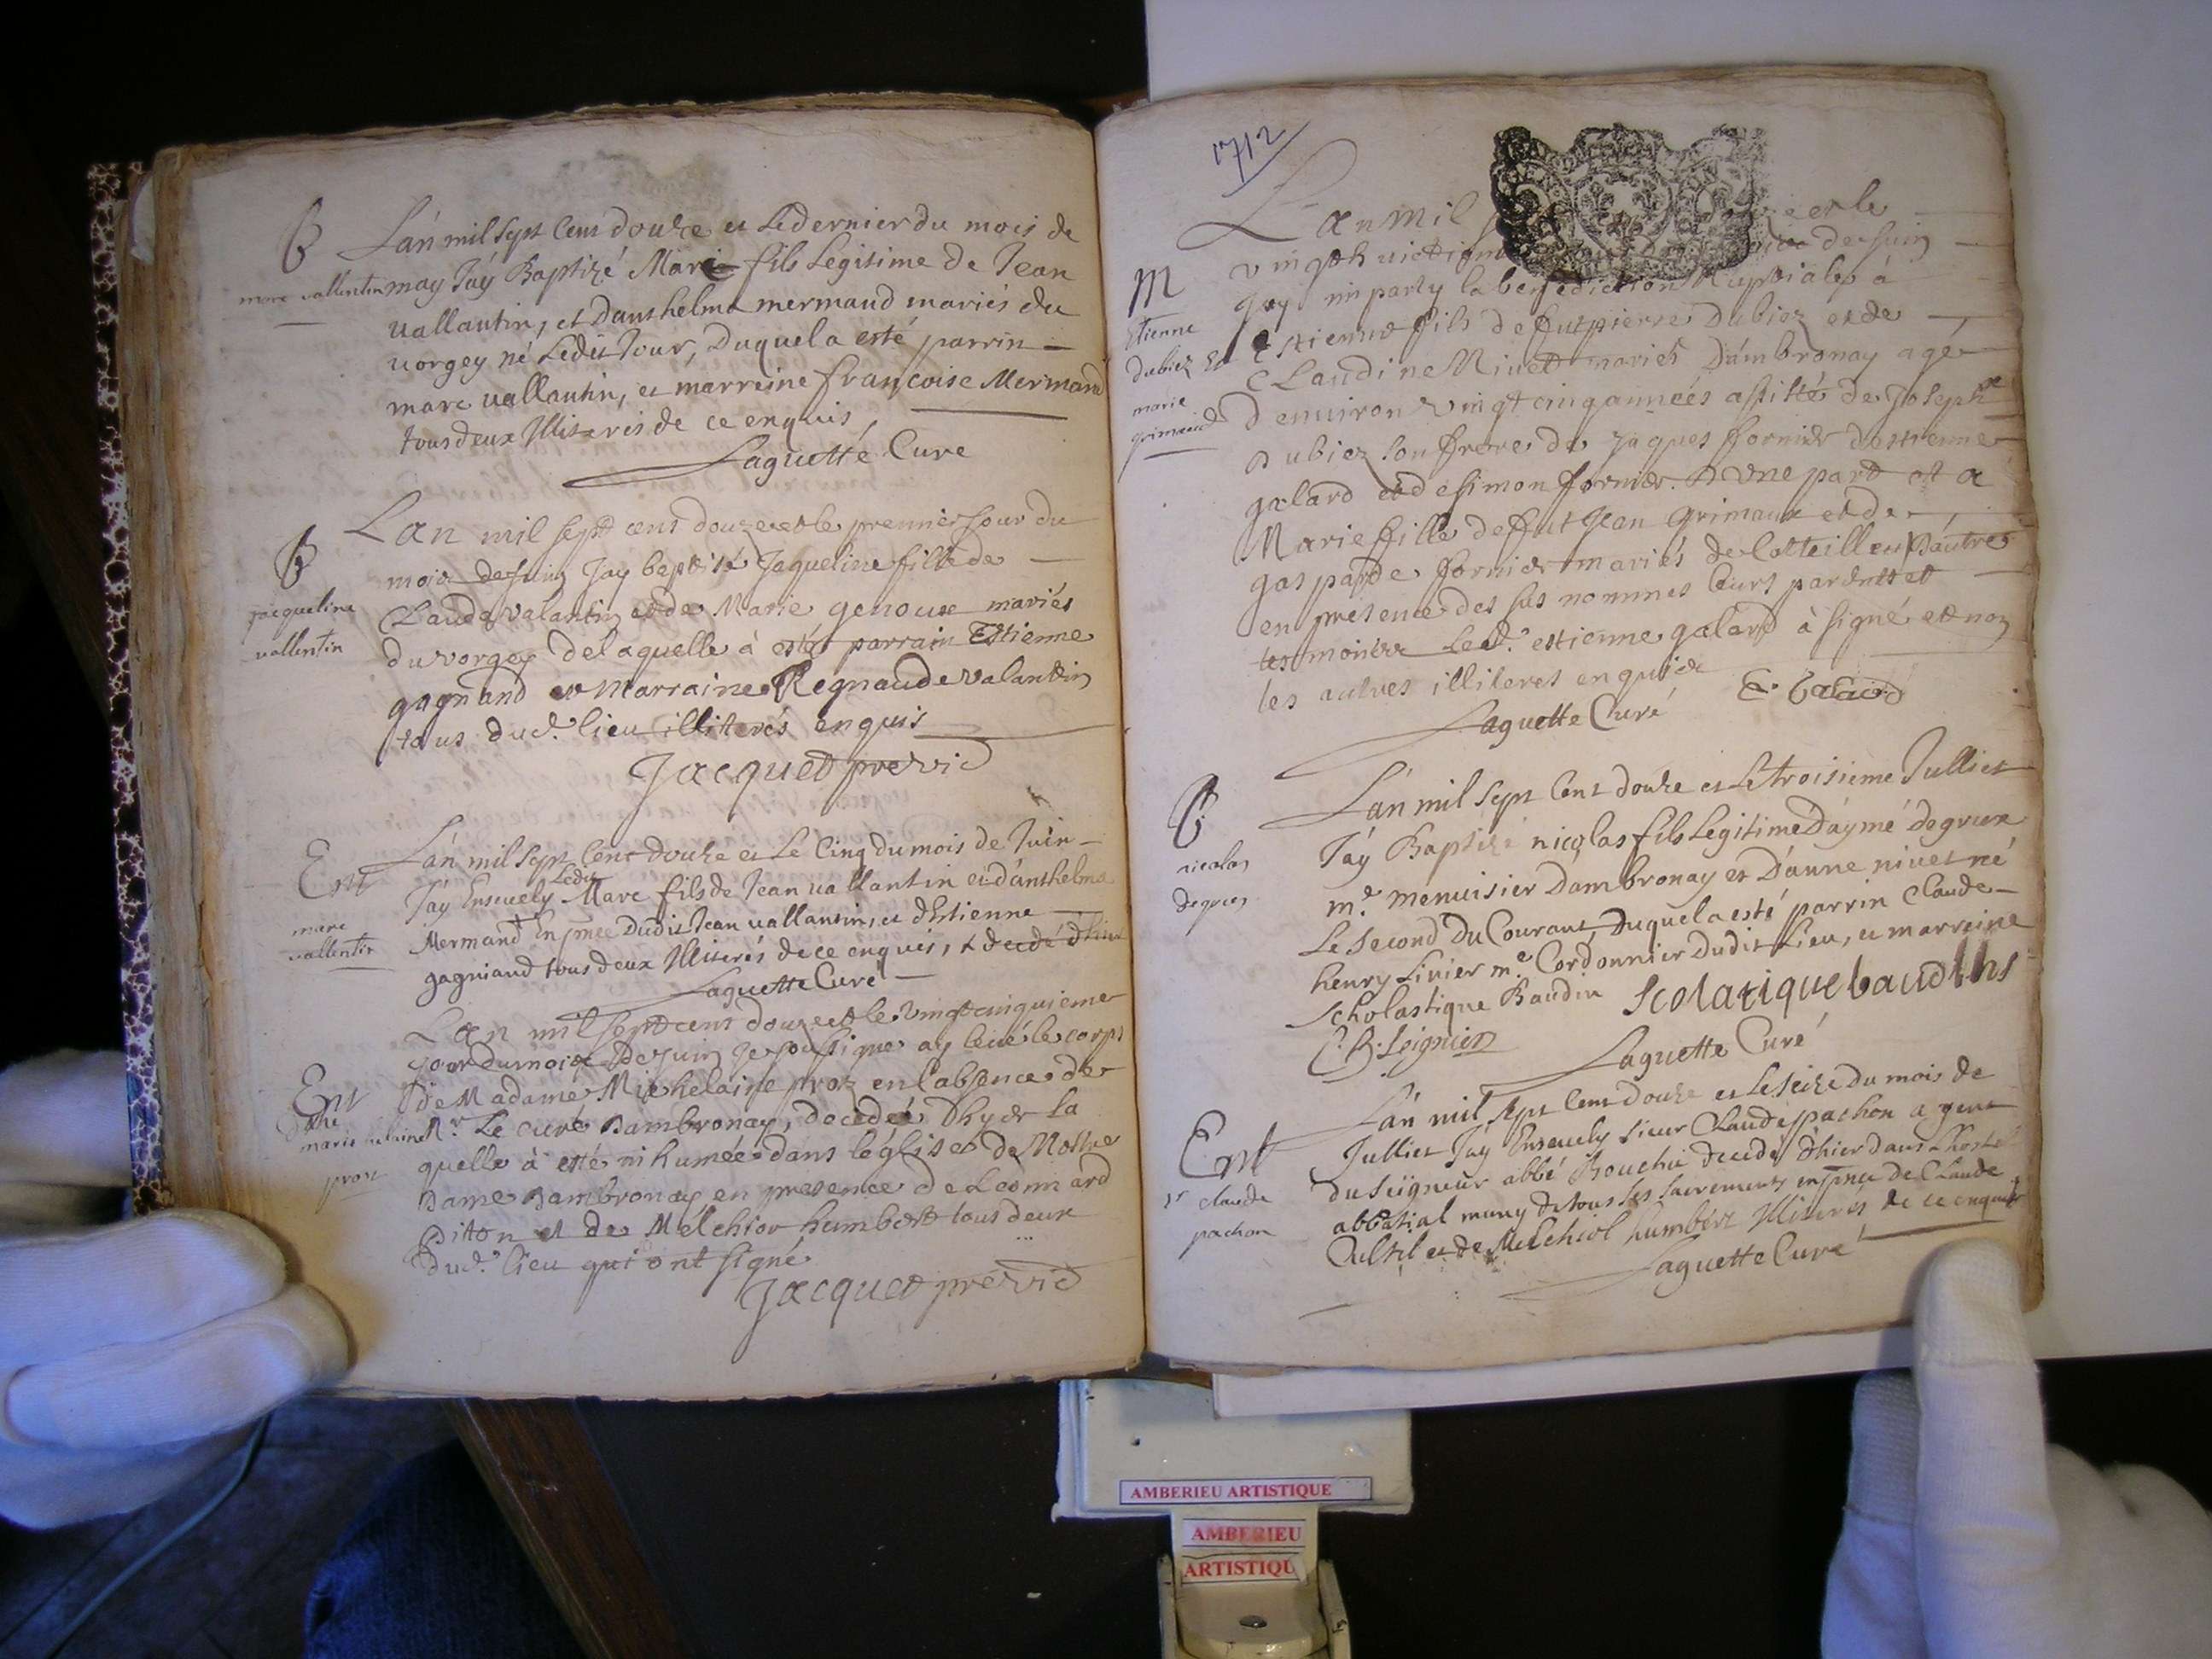 B
marc vallentin
Lán mil sept Cens douze et Le dernier du mois de
may Jáy Baptizé Marc fils Legitime de Jean
vallantin, et Danthelma mermand mariés du
vorgey né Ledit Jour, Duquel a esté parrin
marc vallantin, et marreine françoise Mermand
tous deux Illiterés de ce enquis
Laguette Curé
B
jacqueline
vallentin
Lan mil sept cens douze et le premier Jour du
mois de Juin Jay baptisé Jaqueline fille de
Claude valantin et de Marie genoux mariés
du vorgey de laquelle à esté parrain Estienne
gagnand et Marraine Regnaude valantin
tous dud. lieu illiterés enquis
Jacquet previd
Ent
marc
vallentin
Lán mil sept Cent douze et Le Cinq du mois de Juin
Jáy Ensevely Ledit Marc fils de Jean vallantin et d'anthelma
Mermand En pnce Dudit Jean vallantin, et d'Estienne
gagniand tous deux Illiterés de ce enquis, et decedé d'hier
Laguette Curé
Ent
marie helaine
proz
Lan mil sept cens douze et le vingt cinquieme
jour du mois de Juin Je soussigne ay levé le corps
de Madame Michelaine proz en l'absence de
Mr. Le curé Dambronay, decedée d'hyer la
quelle à esté inhumée dans léglise de Nostre
Dame Dambronay en presence de Leonnard
Pitton et de Melchior humbert tous deux
dud. lieu qui ont signé
Jacquet previd
1712
M
Etienne
dubiez Et
marie
grimaud
Lan mil et le
vingt huictieme de Juin
Jay imparty la benediction Nuptiales à
Estienne fils de fut pierre Dubiez et de
Claudine Nivet mariés D'ambronay agé
d'environ vingt cinq années assisté de Joseph
Dubiez son frere de Jaques fornier d'estienne
galard et de simon fornier. D'une part et a
Marie fille de fut Jean Grimaux et de
gasparde fornier mariés de d'autres
en presence des sus nommes leurs parents et
tesmoints Led. estienne galard à signé et non
les autres illiteres enquis
Laguette Curé E. Galard
B
nicolas
degrus
Lán mil sept Cent douze et Le troisieme Julliet
Jáy Baptizé nicolas fils Legitime Dáymé degrux
me. menuisier Dambronay et D'anne nivet né
Le second Du Courant Duquel a esté parrin Claude
henry Linier me. Cordonnier Dudit Lieu, et marreine
Scholastique Baudin Scolatique baudins
Laguette Curé
Ent
sr claude
pachon
Lán mil sept Cent douze et Le seize Du mois de
Julliet Jay Ensevely sieur Claude pachon agent
Du seigneur abbé Bouchu decedé d'hier dans L'hostel
abbatial muny de tous les sacrements en pnce de Claude
et de Melchiol humbert Illiterés de ce enquis
Laguette Curé
AMBERIEU ARTISTIQUE
AMBERIEU
ARTISTIQU